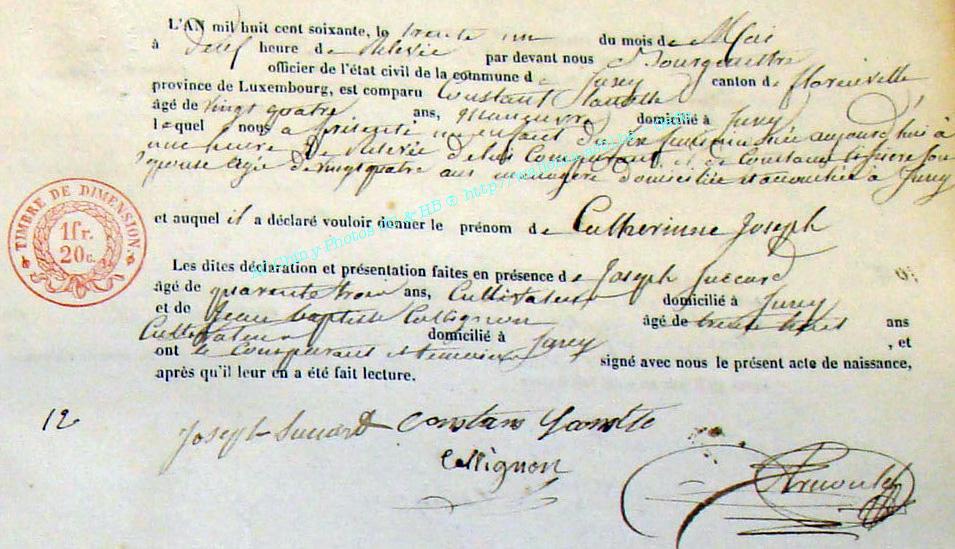 L'AN mil huit cent soixante, le trente un du mois de Mai
à deux heure de relevée par devant nous Bourgmestre
officier de l'état civil de la commune de Jurey canton de florenville
province de Luxembourg, est comparu Constant
âgé de vingt quatre ans, Manoeuvre domicilié à Jurey
lequel nous a présenté un enfant du sexe feminin née aujourd'hui à
une heure de relevée de lui Comparant et de Constance son
epouse agée de vingt quatre ans menagère domiciliée et accouchée à Jurey
et auquel il a déclaré vouloir donner le prénom de Catherinne Joseph
Les dites déclaration et présentation faites en présence de Joseph
âgé de quarante trois ans, Cultivateur domicilié à Jurey
et de Jean baptiste Collignon âgé de trente trois ans
Cultivateur domicilié à Jurey, et
ont le Comparant et temoins signé avec nous le présent acte de naissance,
après qu'il leur en a été fait lecture.
TIMBRE DE DIMENSION.
1fr.
20c.
12
Joseph Constant
Collignon